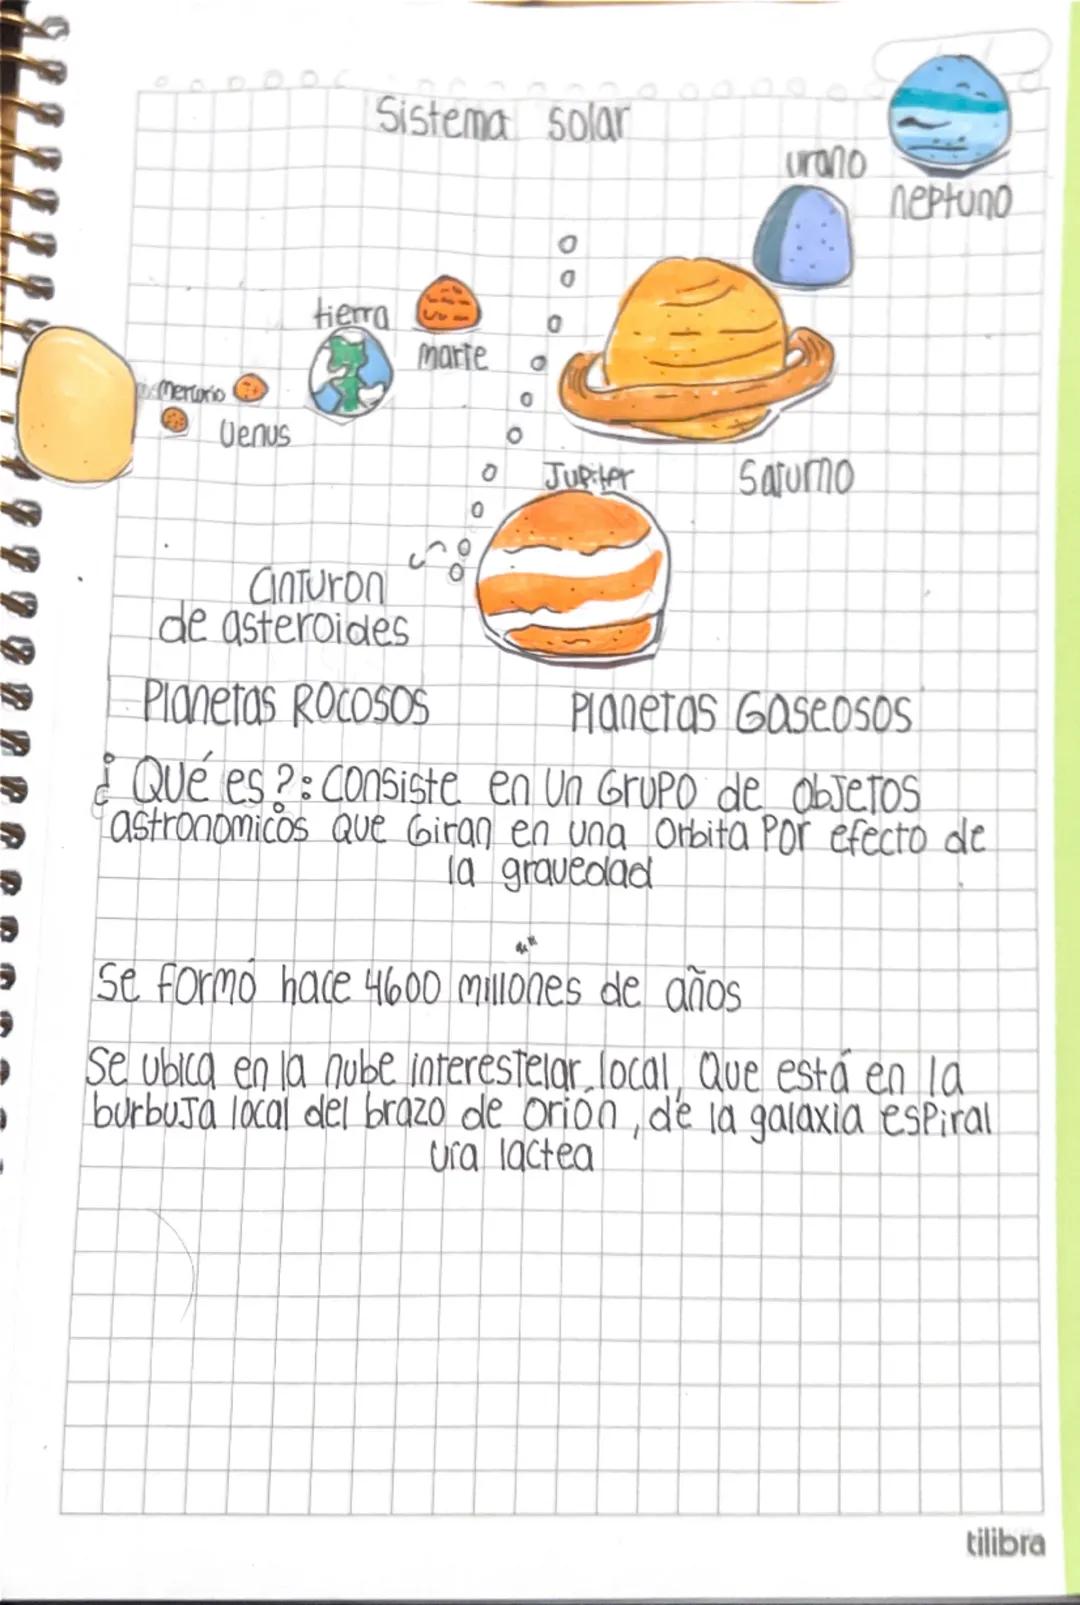 Sistema solar
urano
neptuno
tierra
marte
Mercurio
Venus
Jupiter
Saturno
Cinturon
de asteroides
Planetas Rocosos
Planetas Gaseosos
¿Qué es?: Consiste en un Grupo de objetos
astronomicos que Giran en una Orbita Por efecto de
la gravedad
Se formó hace 4600 millones de años
Se ubica en la nube interestelar local, Que está en la
burbuja local del brazo de orión, de la galaxia espiral
vía lactea
tilibra